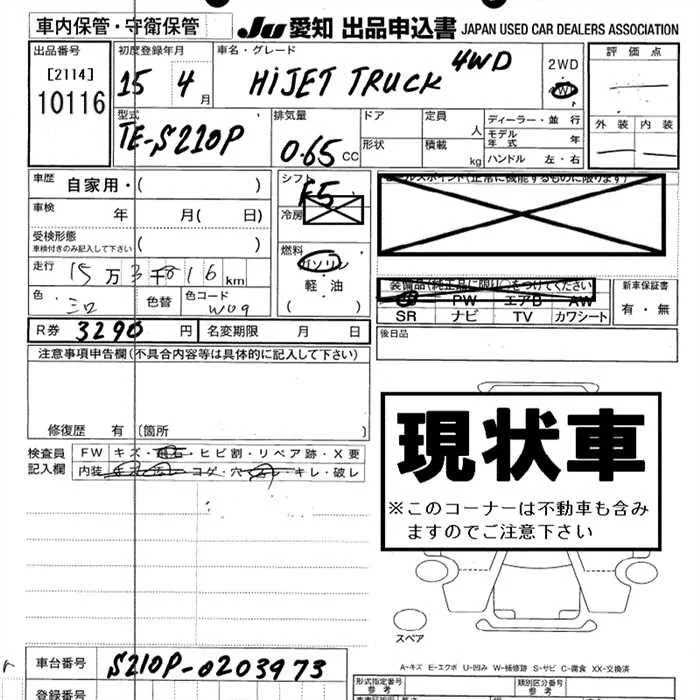 車内保管・守衛保管
JU 愛知 出品申込書 JAPAN USED CAR DEALERS ASSOCIATION
出品番号
[2114]
10116
初度登録年月
15 4 月
車名・グレード
HIJET TRUCK 4WD
2WD
評価点
外装 内装
型式
TE-S210P
排気量
0.65 CC
ドア
形状
定員 人
積載 kg
ディーラー・並行
モデル年式
ハンドル 左・右
車歴 自家用・( )
車検 年 月( 日)
受検形態
車検付きのみ記入して下さい ( )
走行 15万3千816km
色
色替
色コード
W09
R券 3290 円 名変期限 月 日
シフト F5
冷房
燃料
ガソリン
軽油
( )
セールスポイント(正常に機能するものに限ります)
装備品(純正品に限り○をつけてください)
PW エアB AW
SR ナビ TV カワシート
新車保証書
有・無
後日品
注意事項申告欄(不具合内容等は具体的に記入して下さい)
修復歴 有 〔箇所
検査員
記入欄
FW キズ・飛石・ヒビ割・リペア跡・X要
内装 キズ・汚レ・コゲ・穴・汚レ・キレ・破レ
現状車
※このコーナーは不動車も含み
ますのでご注意下さい
スペア
A-キズ E-エクボ U-凹み W-補修跡 S-サビ C-腐食 XX-交換済
車台番号 S210P-0203973
登録番号
形式指定番号
参考
類別区分番号
参考